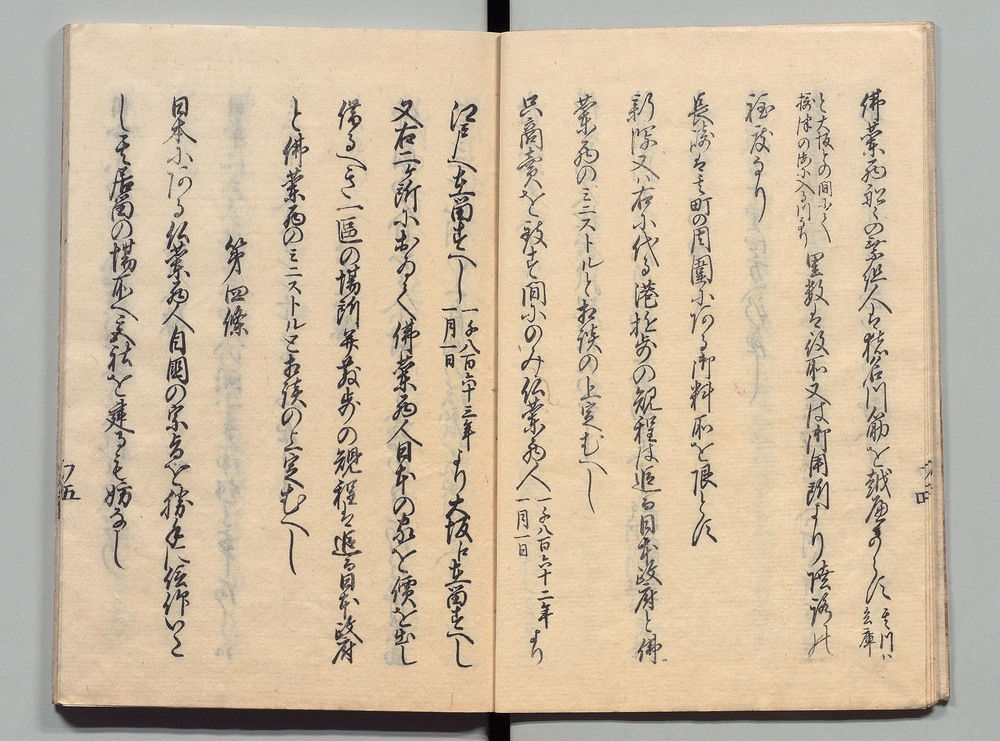 佛蘭西船々の乗組人ハ猪名川筋を越ゆへからす 其川ハ兵庫
と大坂との間ニて
摂津の海ニ入る川なり 里数は役所又は御用所より陸路の
程度なり
長崎は其町の周囲にある御料所を限とす
新潟又ハ右に代る港遊歩の規程は追る日本政府と佛
蘭西のミニストルと相談の上定むへし
只商売を致す間にのみ仏蘭西人 一千八百六十二年
一月一日 より
江戸へ在留すへし 一千八百六十三年
一月一日 より大坂に在留すへし
又右二ケ所におゐて佛蘭西人日本の家を價を出し
借るへき一區の場所并散歩の規程は追る日本政府
と佛蘭西のミニストルと相談の上定むへし
第四條
日本にある仏蘭西人自國の宗旨を勝手に信仰いた
し其居留の場所へ宮社を建るも妨なし
六四
六五